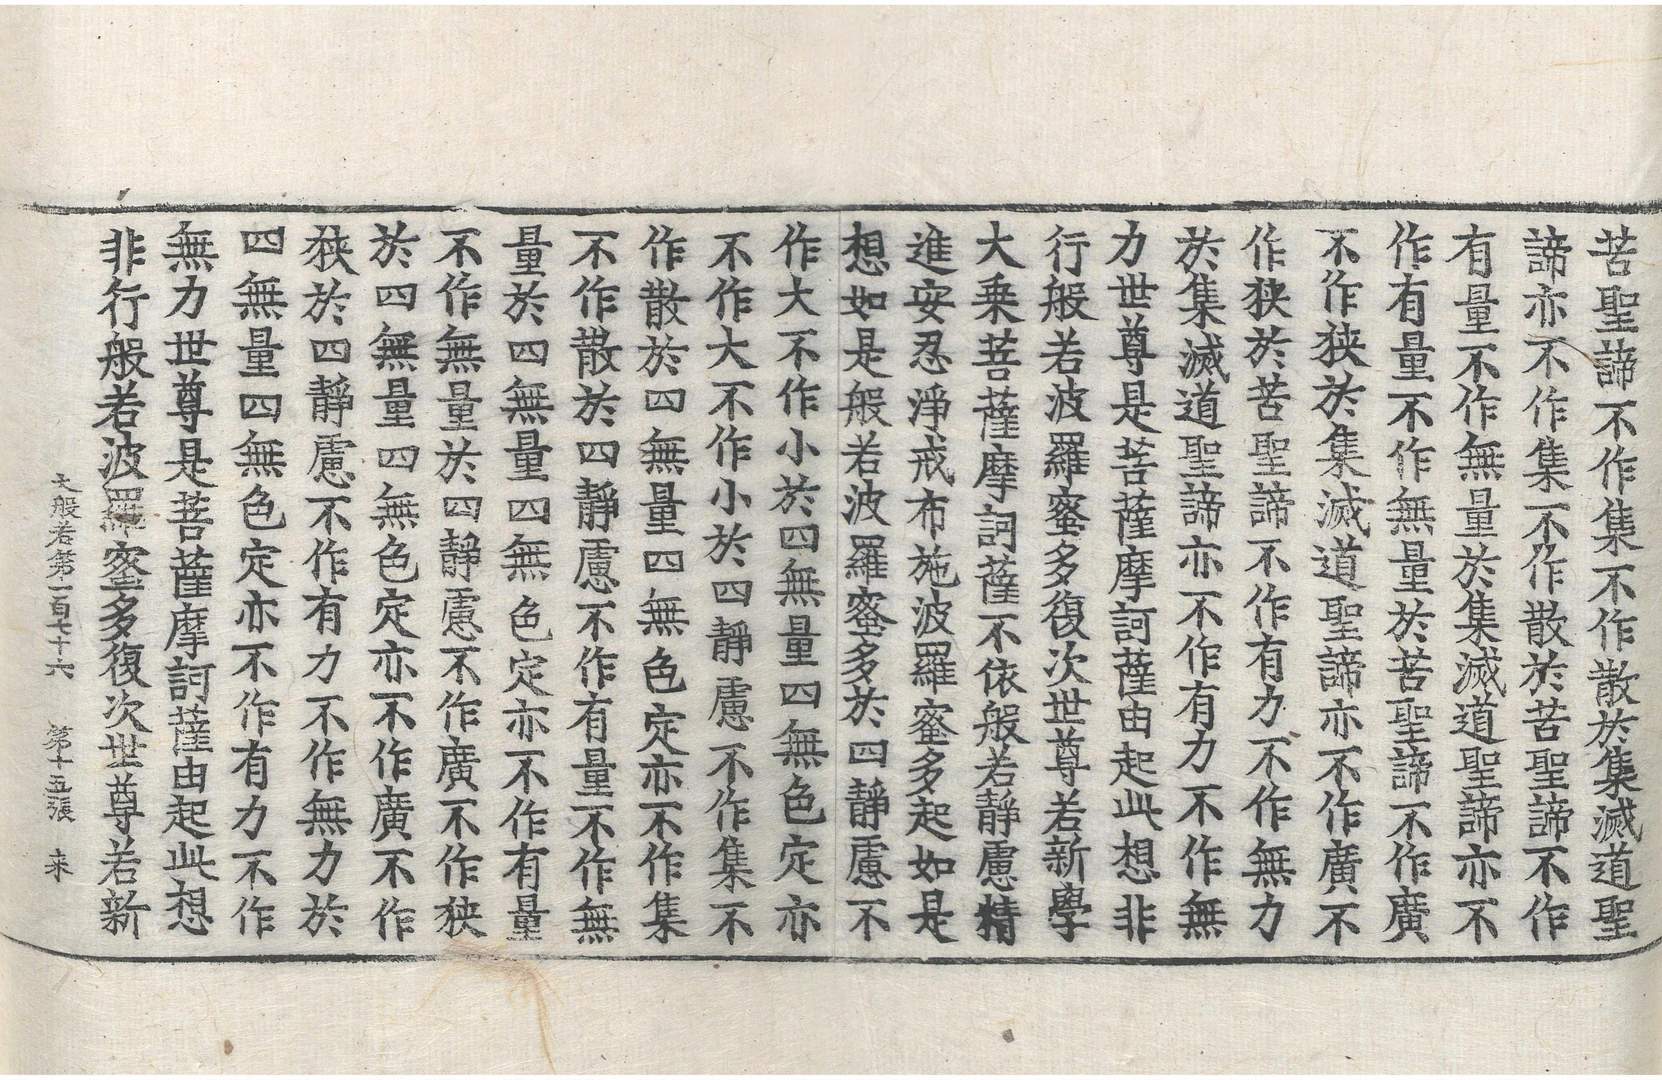 苦聖諦不作集不作散於集滅道聖
諦亦不作集不作散於苦聖諦不作
有量不作無量於集滅道聖諦亦不
作有量不作無量於苦聖諦不作廣
不作狹於集滅道聖諦亦不作廣不
作狹於苦聖諦不作有力不作無力
於集滅道聖諦亦不作有力不作無
力世尊是菩薩摩訶薩由起此想非
行般若波羅蜜多復次世尊若新學
大乘菩薩摩訶薩不依般若靜慮精
進安忍淨戒布施波羅蜜多起如是
想如是般若波羅蜜多於四靜慮不
作大不作小於四無量四無色定亦
不作大不作小於四靜慮不作集不
作散於四無量四無色定亦不作集
不作散於四靜慮不作有量不作無
量於四無量四無色定亦不作有量
不作無量於四靜慮不作廣不作狹
於四無量四無色定亦不作廣不作
狹於四靜慮不作有力不作無力於
四無量四無色定亦不作有力不作
無力世尊是菩薩摩訶薩由起此想
非行般若波羅蜜多復次世尊若新
大般若第一百七十六 第十五張 來